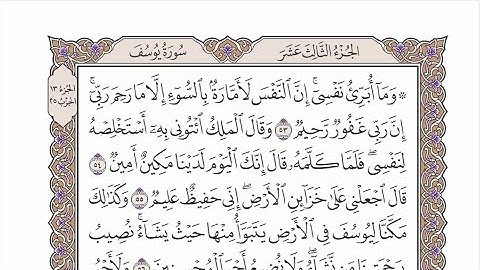 الجُزْءُ الثَّالِثَ عَشَرَ
سُورَةُ يُوسُفَ
الجزء ١٣
الحزب ٢٥
۞ وَمَآ أُبَرِّئُ نَفْسِيٓۚ إِنَّ ٱلنَّفْسَ لَأَمَّارَةُۢ بِٱلسُّوٓءِ إِلَّا مَا رَحِمَ رَبِّيٓۚ
إِنَّ رَبِّي غَفُورٞ رَّحِيمٞ ٥٣ وَقَالَ ٱلْمَلِكُ ٱئْتُونِي بِهِۦٓ أَسْتَخْلِصْهُ
لِنَفْسِيۖ فَلَمَّا كَلَّمَهُۥ قَالَ إِنَّكَ ٱلْيَوْمَ لَدَيْنَا مَكِينٌ أَمِينٞ ٥٤
قَالَ ٱجْعَلْنِي عَلَىٰ خَزَآئِنِ ٱلْأَرْضِۖ إِنِّي حَفِيظٌ عَلِيمٞ ٥٥ وَكَذَٰلِكَ
مَكَّنَّا لِيُوسُفَ فِي ٱلْأَرْضِ يَتَبَوَّأُ مِنْهَا حَيْثُ يَشَآءُۚ نُصِيبُ
بِرَحْمَتِنَا مَن نَّشَآءُۖ وَلَا نُضِيعُ أَجْرَ ٱلْمُحْسِنِينَ ٥٦ وَلَأَجْرُ